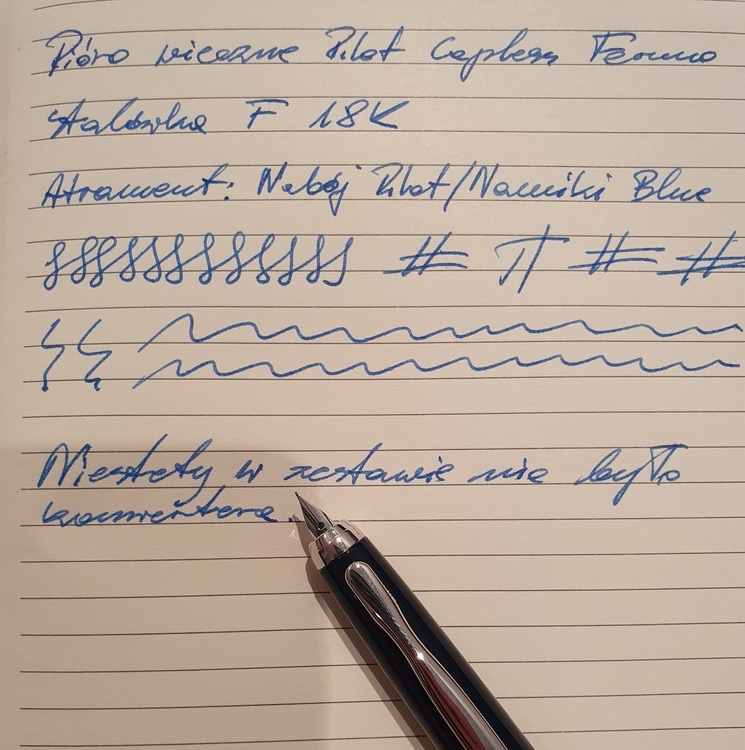 Pióro wieczne Pilot Capless Fermo
stalówka F 18K
Atrament: Nabój Pilot/Namiki Blue
# π # #
Niestety w zestawie nie było
konwertera.